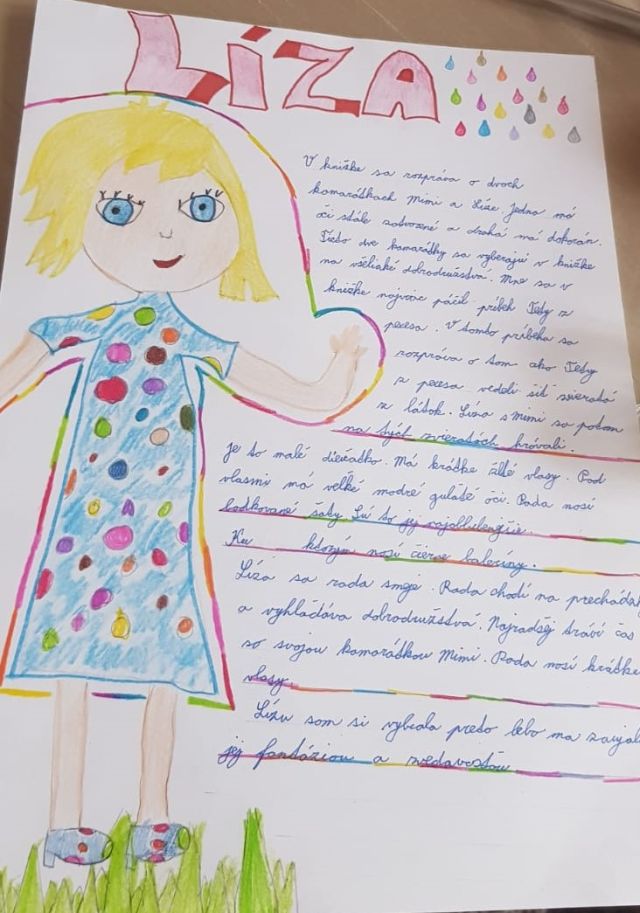 LÍZA
V knižke sa rozpráva o dvoch
kamarátkach Mimi a Líze. Jedna má
oči stále zatvorené a druhá má dokorán.
Tieto dve kamarátky sa vyberajú v knižke
na všelijaké dobrodružstvá. Mne sa v
knižke najviac páčil príbeh Tety z
pecesa. V tomto príbehu sa
rozpráva o tom ako Tety
z pecesa vedeli šiť zvieratá
z látok. Líza s Mimi sa potom
na tých zvieratách hrávali.
Je to malé dievčatko. Má krátke žlté vlasy. Pod
vlasmi má veľké modré guľaté oči. Rada nosí
bodkované šaty. Sú to jej
Ku ktorým nosí čierne baleríny.
Líza sa rada smeje. Rada chodí na
a vyhľadáva dobrodružstvá. Najradšej trávi čas
so svojou kamarátkou Mimi. Rada nosí krátke
vlasy.
Lízu som si vybrala preto lebo ma
jej fantáziou a zvedavosťou